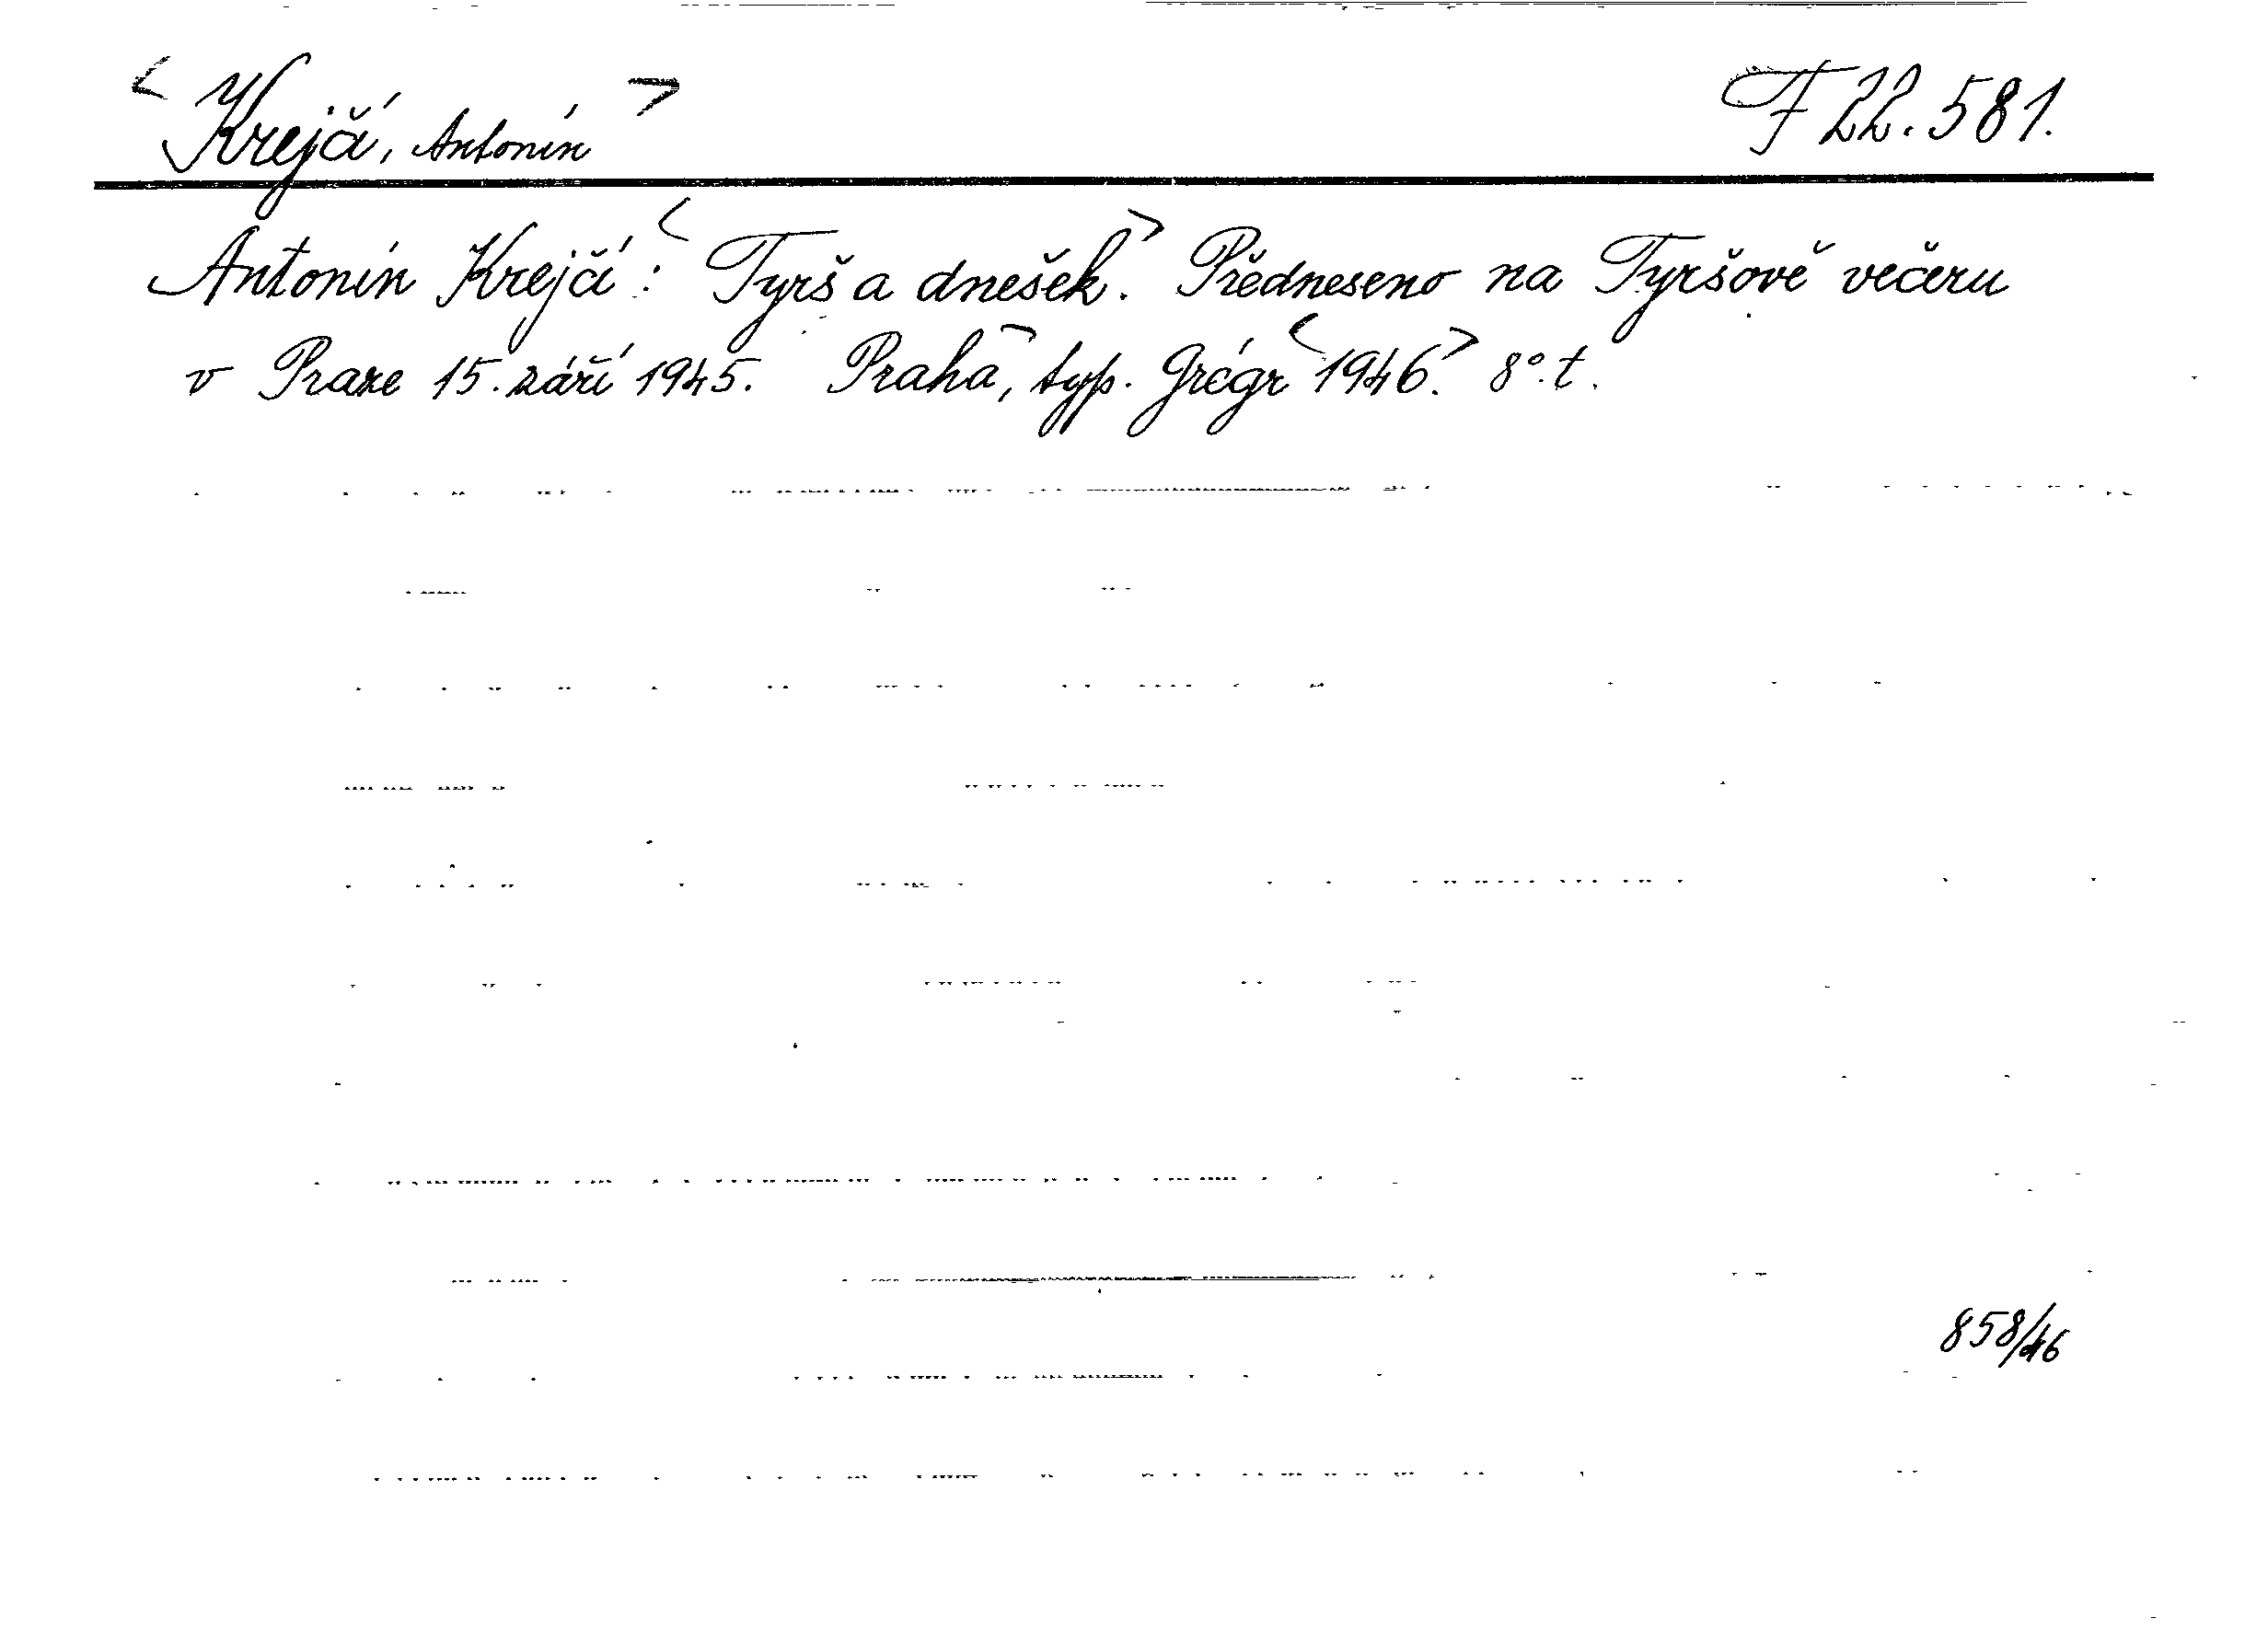 <Krejčí, Antonín> F 22.581.
Antonín Krejčí: <Tyrš a dnešek.> Předneseno na Tyršově večeru
v Praze 15. září 1945. Praha>, typ. Grégr <1946.> 8°. t.
858/46